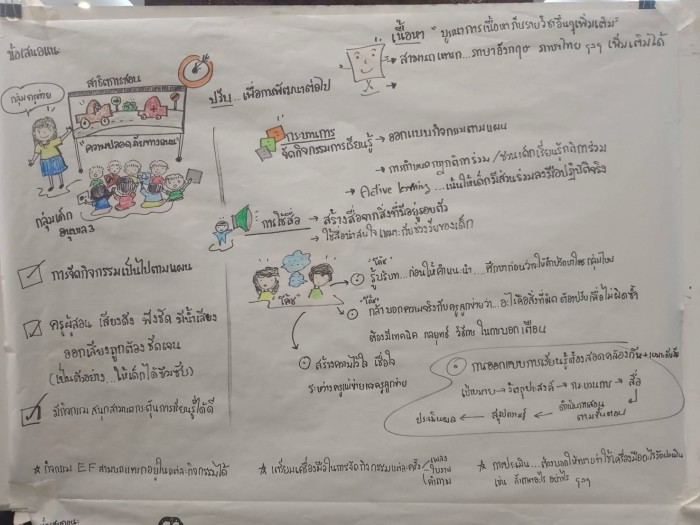 ข้อเสนอแนะ
กลุ่มครูถ่าย
สาธิตการสอน
"ความปลอดภัยทางถนน"
กลุ่มเด็ก
อนุบาล 3
เนื้อหา "บูรณาการเนื้อหากับรายวิชาอื่นๆเพิ่มเติม"
→ สามารถแทรก...ภาษาอังกฤษ ภาษาไทย ฯลฯ เพิ่มเติมได้
ปรับ... เพื่อการพัฒนาต่อไป
กระบวนการ
จัดกิจกรรมการเรียนรู้ → ออกแบบกิจกรรมตามแผน
→ การกำหนดกฎกติการ่วม/ชวนเด็กเรียนรู้กติการ่วม
→ Active learning ...เน้นให้เด็กมีส่วนร่วมลงมือปฏิบัติจริง
การใช้สื่อ → สร้างสื่อจากสิ่งที่มีอยู่รอบตัว
→ ใช้สื่อน่าสนใจ เหมาะกับช่วงวัยของเด็ก
การจัดกิจกรรมเป็นไปตามแผน
ครูผู้สอน เสียงดัง ฟังชัด มีน้ำเสียง
ออกเสียงถูกต้อง ชัดเจน
(เป็นตัวอย่าง... ให้เด็กได้ซึมซับ)
มีกิจกรรม สนุกสนานกระตุ้นการเรียนรู้ได้ดี
"โค้ช"
"โค้ช"
รู้บริบท...ก่อนให้คำแนะนำ... ศึกษาก่อนว่าให้คำปรึกษาใคร กลุ่มไหน
"โค้ช"
กล้าบอกความจริงกับครูลูกข่ายว่า...อะไรคือสิ่งที่ผิด ต้องปรับเพื่อไม่ผิดซ้ำ
ต้องมีเทคนิค กลยุทธ์ วิธีการ ในการบอก เตือน
สร้างความไว้ใจ เชื่อใจ
ระหว่างครูแม่ข่ายและครูลูกข่าย
การออกแบบการเรียนรู้ต้องสอดคล้องกัน
เป้าหมาย → วัตถุประสงค์ → กระบวนการ → สื่อ
ประเมินผล ← สรุปความรู้ ← ดำเนินการสอน
ตามขั้นตอน
★ กิจกรรม EF สามารถแทรกอยู่ในแต่ละกิจกรรมได้
★ เตรียมเครื่องมือในการจัดกิจกรรมแต่ละครั้ง
เพลง
ใบงาน
คำถาม
★ การประเมิน... ต้องบอกให้ทราบว่าใช้เครื่องมืออะไรวัดประเมิน
เช่น คำถามอะไร อย่างไร ฯลฯ